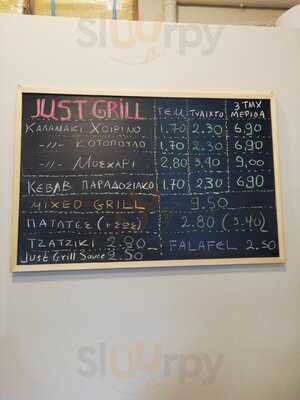 sluurpy
JUST GRILL ΤΕΜ ΤΥΛΙΧΤΟ 3 ΤΜΧ ΜΕΡΙΔΑ
ΚΑΛΑΜΑΚΙ ΧΟΙΡΙΝΟ 1.70 2.30 6.90
-//- ΚΟΤΟΠΟΥΛΟ 1.70 2.30 6.90
-//- ΜΟΣΧΑΡΙ 2.80 3.40 9,00
ΚΕΒΑΒ ΠΑΡΑΔΟΣΙΑΚΟ 1.70 2.30 6.90
MIXED GRILL 9.50
ΠΑΤΑΤΕΣ 2.80 (3.40)
TZATZIKI 2.80 FALAFEL 2.50
Just Grill Sauce 2.50
sluurpy